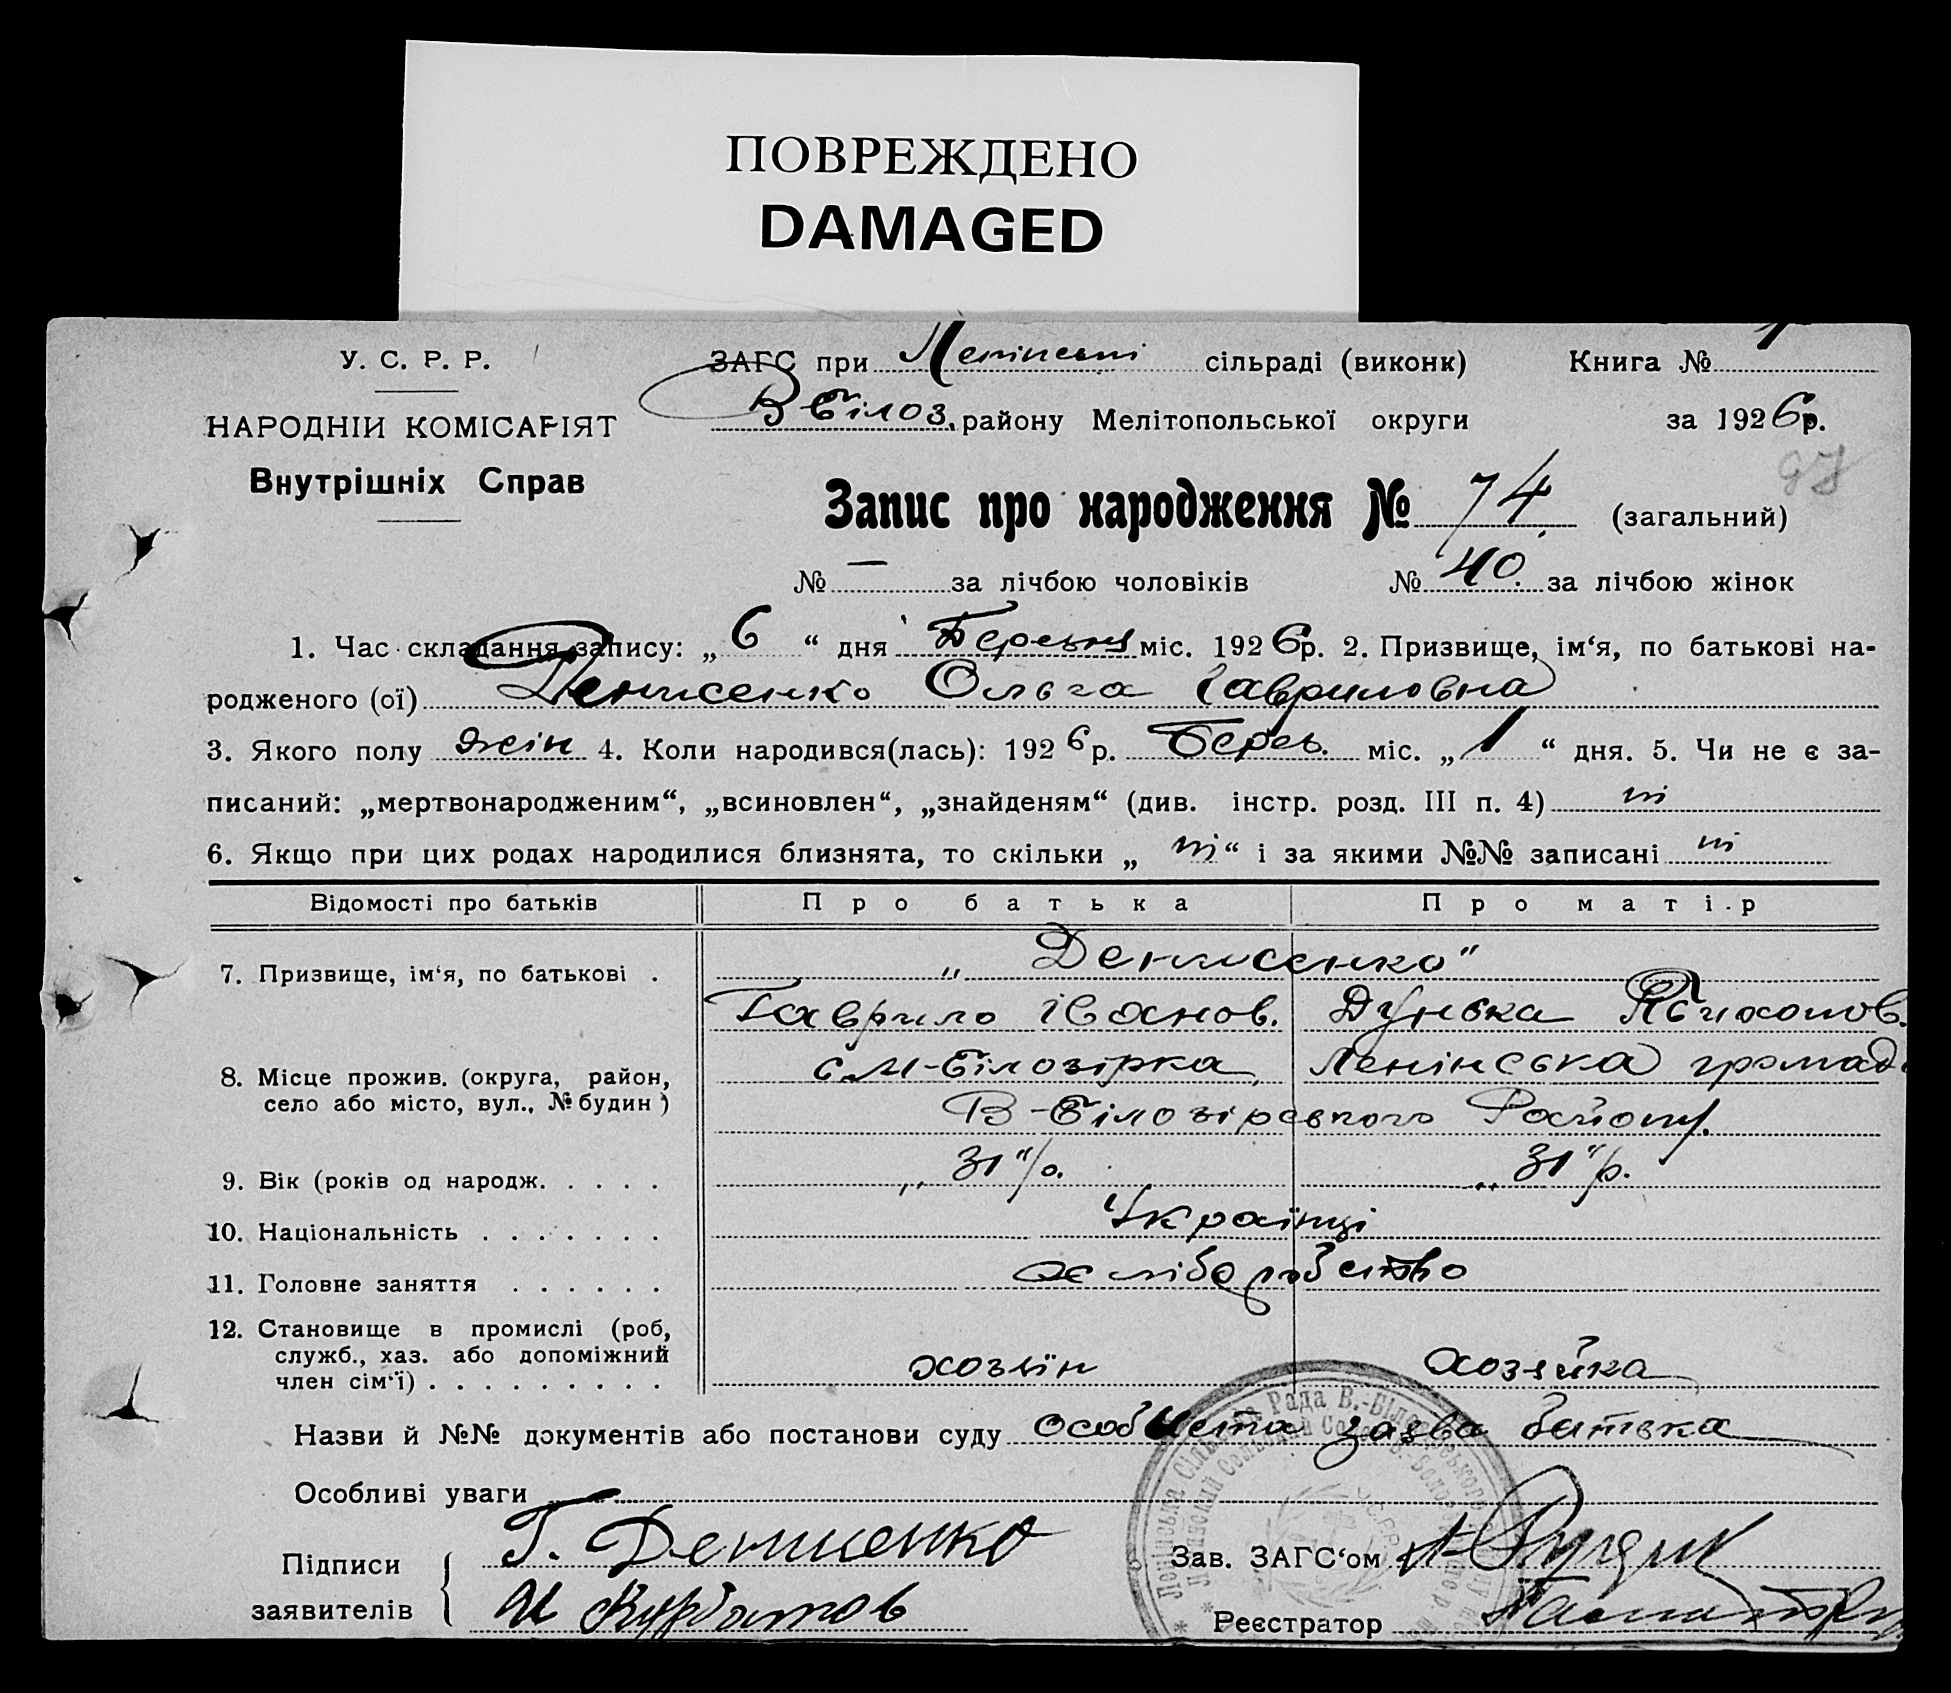 ПОВРЕЖДЕНО
DAMAGED
У. С. Р. Р.
ЗАГС при Ленінські сільраді (виконк) Книга № 1
НАРОДНІЙ КОМІСАРІЯТ
В Білоз. району Мелітопольської округи за 1926р.
Внутрішніх Справ
97
Запис про народження № 74. (загальний)
№ — за лічбою чоловіків № 40. за лічбою жінок
1. Час складання запису: „ 6 “ дня Березня міс. 1926р. 2. Призвище, ім‘я, по батькові на-
родженого (ої) Денисенко Ольга Гавриловна
3. Якого полу жін 4. Коли народився(лась): 1926р. Берез. міс. „ 1 “ дня. 5. Чи не є за-
писаний: „мертвонародженим“, „всиновлен“, „знайденям“ (див. інстр. розд. III п. 4) ні
6. Якщо при цих родах народилися близнята, то скільки „ ні “ і за якими №№ записані ні
Відомості про батьків Про батька Про матір
7. Призвище, ім‘я, по батькові . „ Денисенко "
Гаврило Іванов. Дунька
8. Місце прожив. (округа, район, с М-Білозірка, Ленінська громад
село або місто, вул., № будин)
В-Білозірського Району.
9. Вік (років од народж. . . . . „ 31 "р. „ 31 "р.
10. Національність . . . . . . . Українці
11. Головне заняття . . . . . .
12. Становище в промислі (роб,
служб., хаз. або допоміжний
член сім‘ї) . . . . . . . . . хозяїн хозяйка
Назви й №№ документів або постанови суду особиста заява батька
Особливі уваги
Підписи Г. Денисенко Зав. ЗАГС‘ом
заявителів И Курбатов Реєстратор
Ленінська Сільська Рада В.-Білозерського